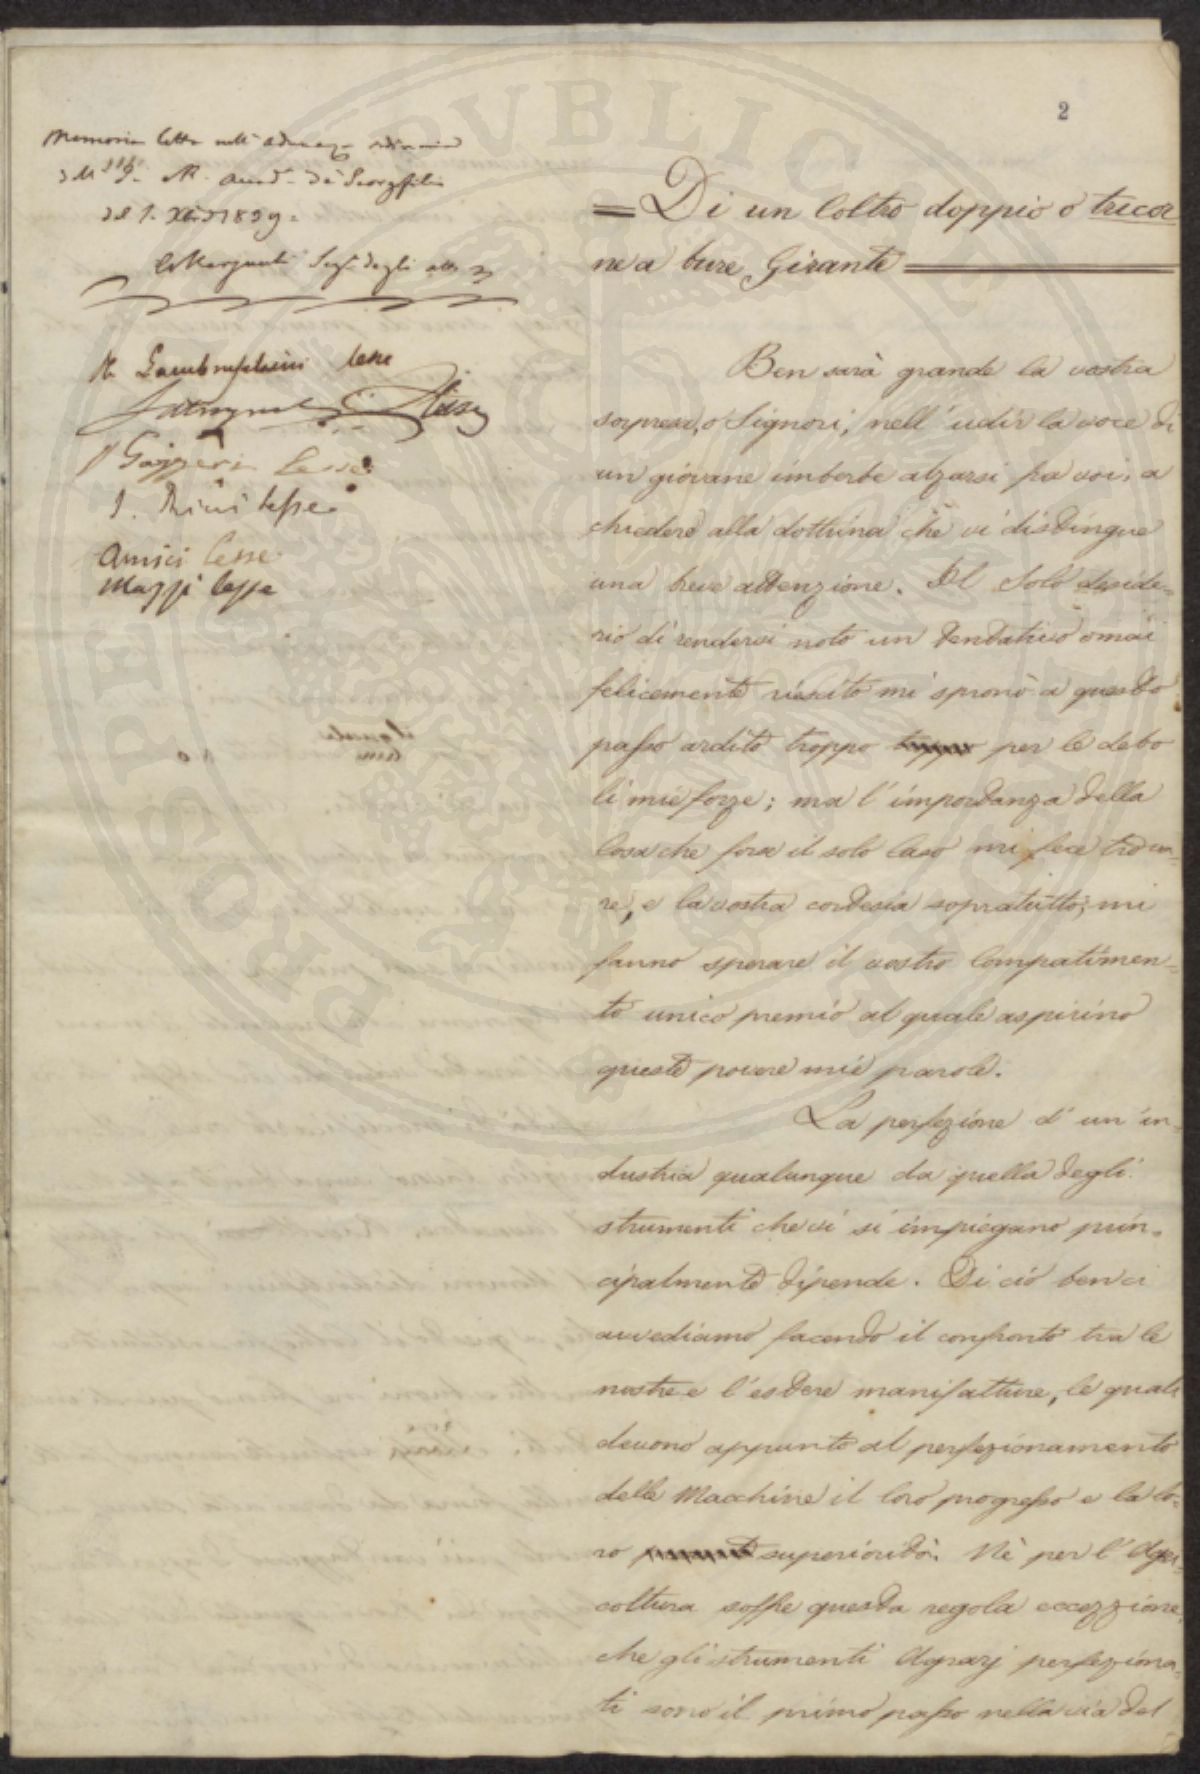 2
Memoria letta nell'adunanza ordinaria
dell' I. e R. Accad. dei Georgofili
del 1. 1839.
Segr. degli atti
R. Lambruschini lesse
lesse
Gazzeri lesse
Ricci lesse
Amici lesse
Mazzi lesse
= Di un Coltro doppio o tricor
ne a bure Girante =
Ben sarà grande la vostra
sorpresa, o Signori, nell'udir la voce di
un giovane imberbe alzarsi fra voi, a
chiedere alla dottrina che vi distingue
una breve attenzione. Il solo deside-
rio di rendervi noto un tentativo omai
felicemente riescito mi spronò a questo
passo ardito troppo troppo per le debo
li mie forze; ma l'importanza della
Cosa che fora il solo Caso mi fece trova-
re, e la vostra cortesia sopratutto; mi
fanno sperare il vostro Compatimen-
to unico premio al quale aspirino
queste povere mie parole.
La perfezione d'un in-
dustria qualunque da quella degli
strumenti che vi si impiegano prin-
cipalmente dipende. Di ciò ben ci
avvediamo facendo il confronto tra le
nostre e l'estere manifatture, le quali
devono appunto al perfezionamento
delle Macchine il loro progresso e la lo-
ro superiorità. Nè per l'Agri-
coltura soffre questa regola eccezzione,
che gli strumenti Agrarj perfeziona-
ti sono il primo passo nella via del
PROSPERITATI PUBLICAE